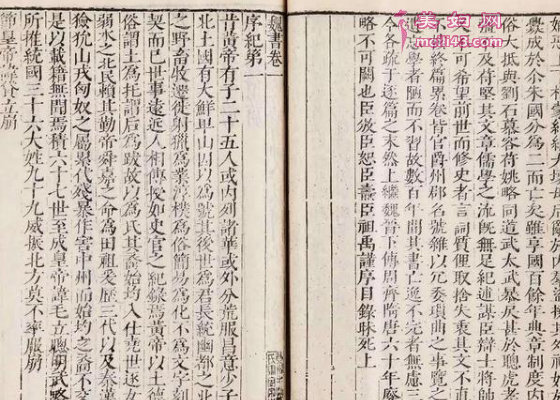 美妇网
釁成於尒朱國分為二而亡矣雖享國百餘年典章制度內
俗大抵與劉石慕容苻姚略同道武太武暴戾甚於聰虎孝
及苻堅其文章儒學之流旣無足紀述謀臣辯士將帥
又不可希望前世而修史者言詞質俚取捨失衷其文不直
不終篇累卷皆官爵州郡名號雜以冗委瑣曲之事覽之
學者陋而不習故數百年間其書亡逸不完者無慮三
今各疏于逐篇之末然上繼魏晉下傳周齊隋唐六十年廢
略不可闕也臣攽臣恕臣燾臣祖禹謹序目錄昧死上
魏書卷一
序紀第
昔黃帝有子二十五人或內列諸華或外分荒服昌意少子
北土國有大鮮卑山因以為號其後世為君長統幽都之北
之野畜牧遷徙射獵為業淳樸為俗簡易為化不為文字刻
契而已世事遠近人相傳授如史官之紀錄焉黃帝以土德
俗謂土為托謂后為跋故以為氏其裔始均入仕堯世逐女
弱水之北民賴其勤帝舜嘉之命為田祖爰歷三代以及秦漢
獫狁山戎匈奴之屬累代殘暴作害中州而始均之裔不交
是以載籍無聞焉積六十七世至成皇帝諱毛立聰明武略
所推統國三十六大姓九十九威振北方莫不率服崩
節皇帝諱貸立崩